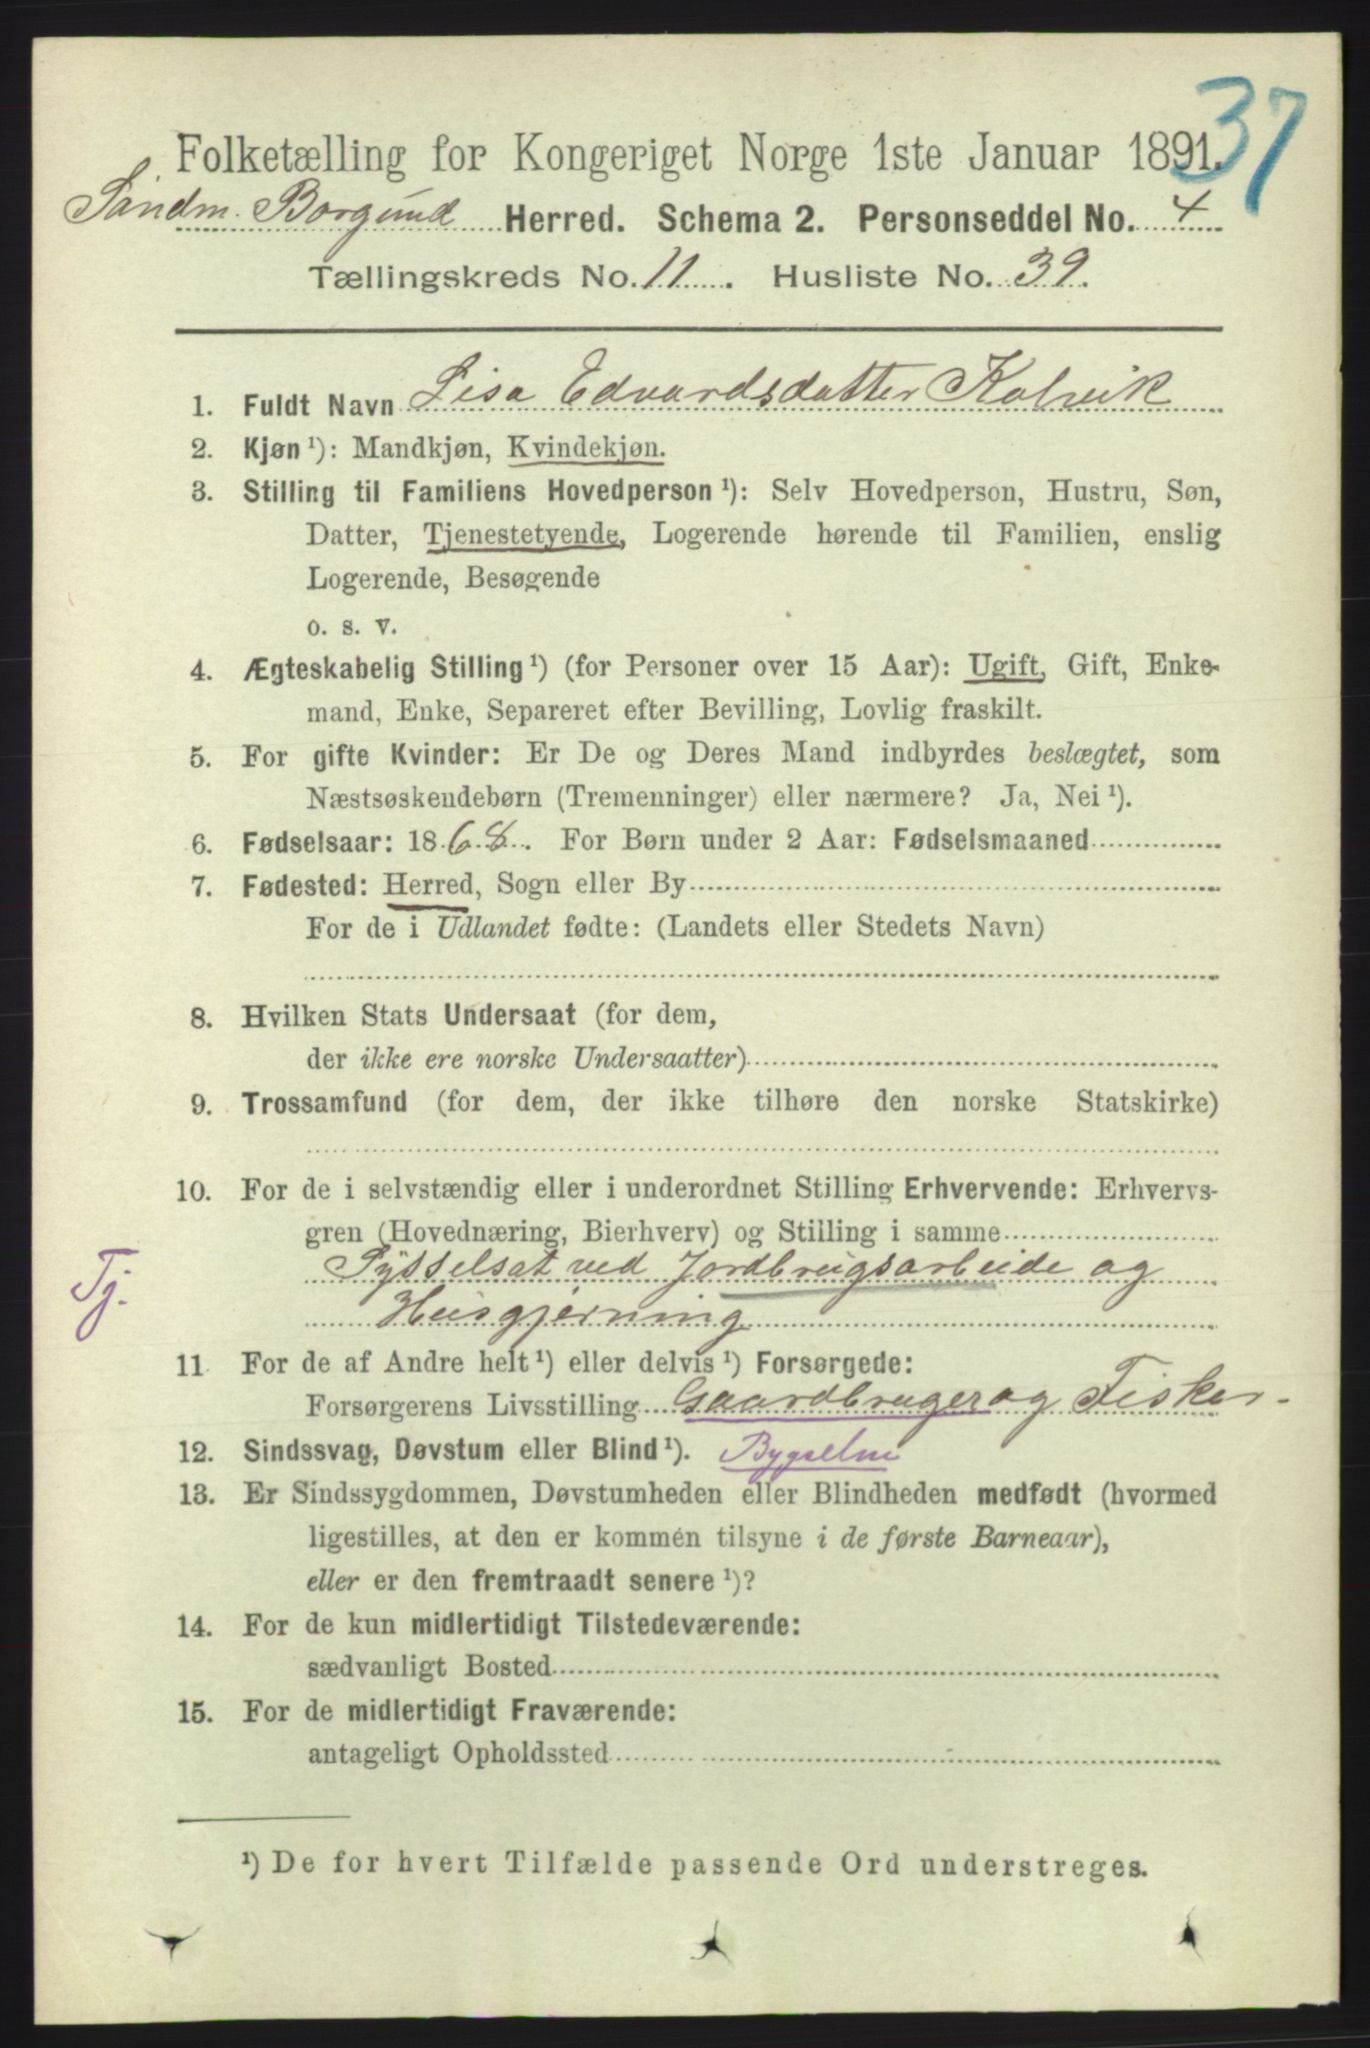 37
Folketælling for Kongeriget Norge 1ste Januar 1891.
Søndm. Borgund Herred. Schema 2. Personseddel No. 4
Tællingskreds No. 11. Husliste No. 39.
1. Fuldt Navn Lisa Edvardsdatter Kalvik
2. Kjøn ¹): Mandkjøn, Kvindekjøn.
3. Stilling til Familiens Hovedperson ¹): Selv Hovedperson, Hustru, Søn,
Datter, Tjenestetyende, Logerende hørende til Familien, enslig
Logerende, Besøgende
o. s. v.
4. Ægteskabelig Stilling ¹) (for Personer over 15 Aar): Ugift, Gift, Enke-
mand, Enke, Separeret efter Bevilling, Lovlig fraskilt.
5. For gifte Kvinder: Er De og Deres Mand indbyrdes beslægtet, som
Næstsøskendebørn (Tremenninger) eller nærmere? Ja, Nei ¹).
6. Fødselsaar: 1868. For Børn under 2 Aar: Fødselsmaaned
7. Fødested: Herred, Sogn eller By
For de i Udlandet fødte: (Landets eller Stedets Navn)
8. Hvilken Stats Undersaat (for dem,
der ikke ere norske Undersaatter)
9. Trossamfund (for dem, der ikke tilhøre den norske Statskirke)
10. For de i selvstændig eller i underordnet Stilling Erhvervende: Erhvervs-
gren (Hovednæring, Bierhverv) og Stilling i samme
Tj. Sysselsat ved Jordbrugsarbeide og
Husgjerning
11 For de af Andre helt ¹) eller delvis ¹) Forsørgede:
Forsørgerens Livsstilling Gaardbruger og Fisker
12. Sindssvag, Døvstum eller Blind ¹).
13. Er Sindssygdommen, Døvstumheden eller Blindheden medfødt (hvormed
ligestilles, at den er kommen tilsyne i de første Barneaar),
eller er den fremtraadt senere ¹)?
14. For de kun midlertidigt Tilstedeværende:
sædvanligt Bosted
15. For de midlertidigt Fraværende:
antageligt Opholdssted
¹) De for hvert Tilfælde passende Ord understreges.